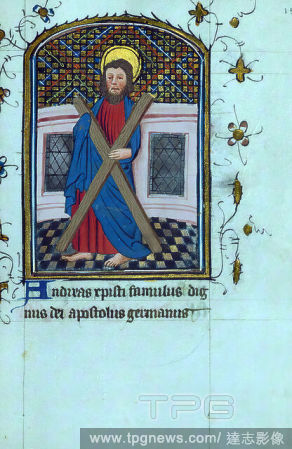 Andreas xpisti famulus dig
nus dei apostolus germanus
TPG
www.tpgnews.com/ 達志影像